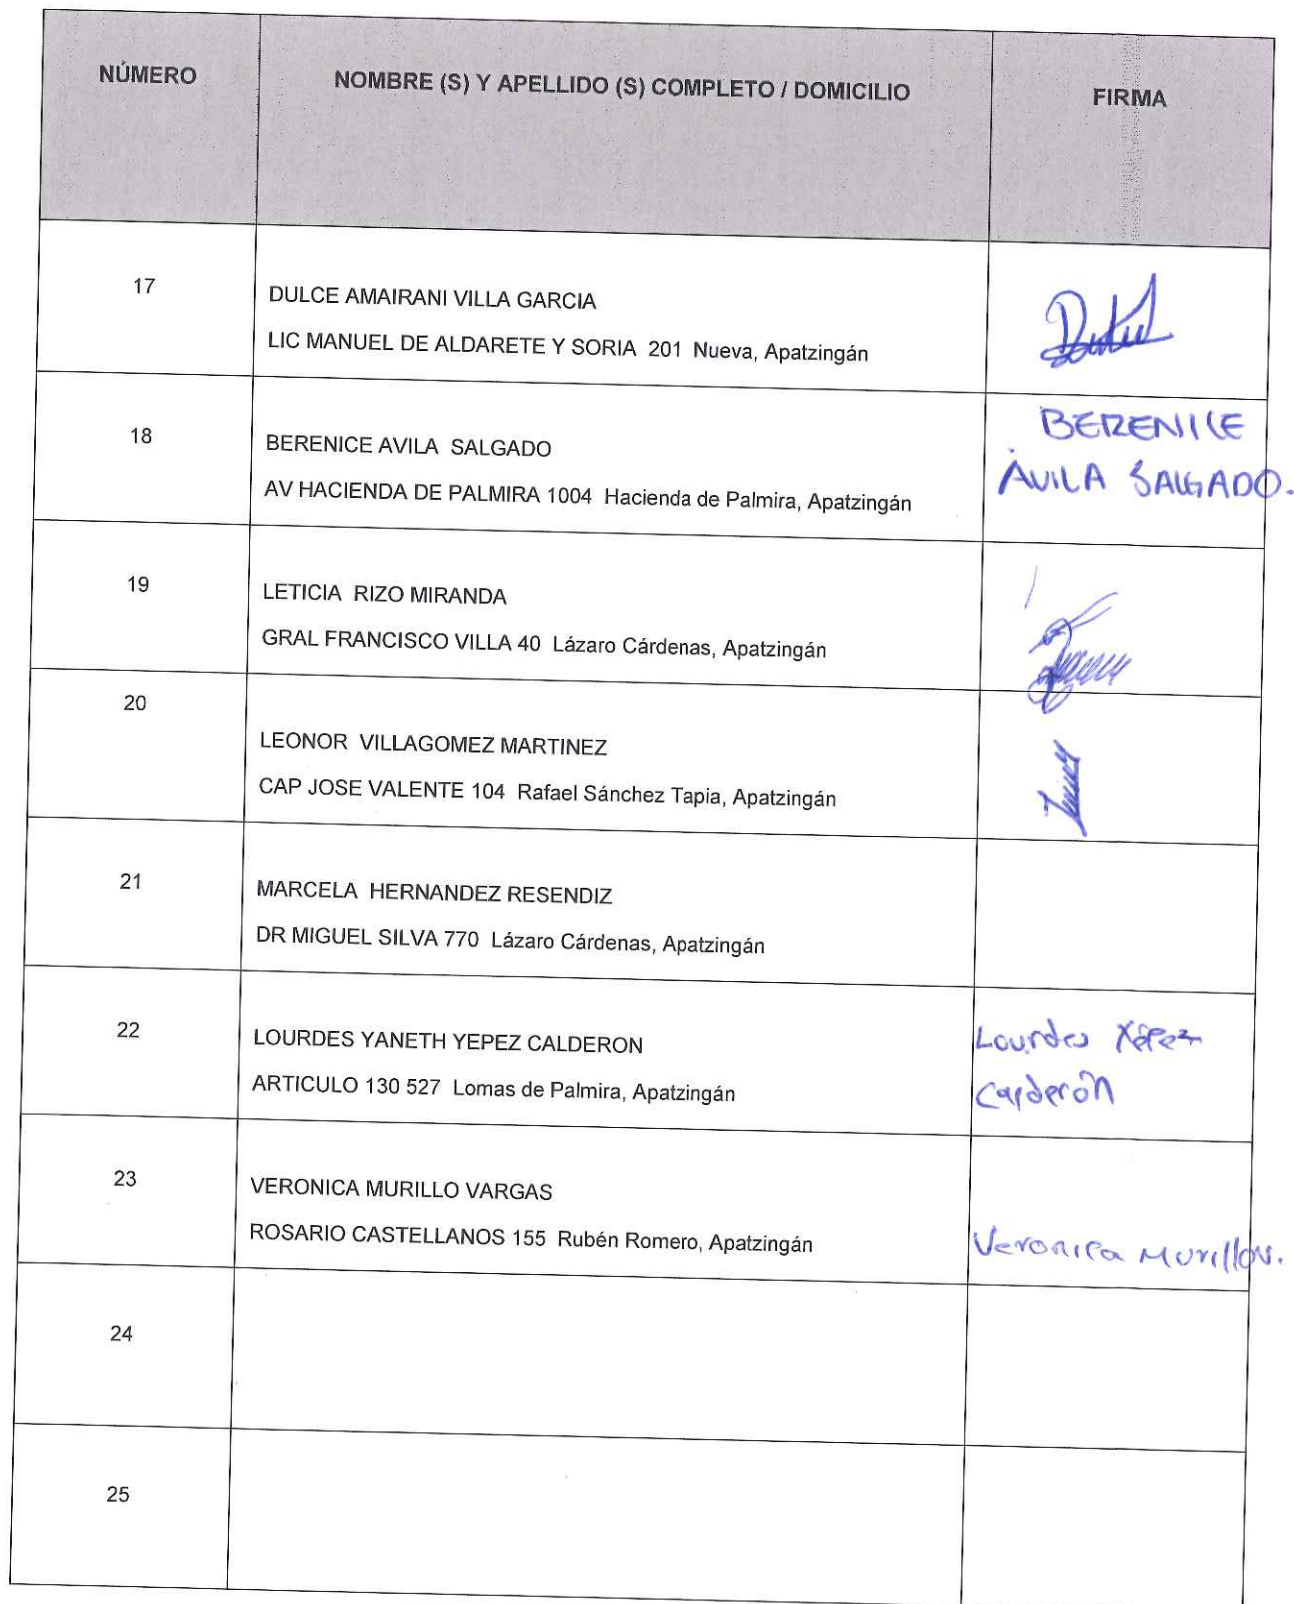 NÚMERO
NOMBRE (S) Y APELLIDO (S) COMPLETO / DOMICILIO
FIRMA
17
DULCE AMAIRANI VILLA GARCIA
LIC MANUEL DE ALDARETE Y SORIA 201 Nueva, Apatzingán
18
BERENICE AVILA SALGADO
AV HACIENDA DE PALMIRA 1004 Hacienda de Palmira, Apatzingán
BERENICE
AVILA SALGADO.
19
LETICIA RIZO MIRANDA
GRAL FRANCISCO VILLA 40 Lázaro Cárdenas, Apatzingán
20
LEONOR VILLAGOMEZ MARTINEZ
CAP JOSE VALENTE 104 Rafael Sánchez Tapia, Apatzingán
21
MARCELA HERNANDEZ RESENDIZ
DR MIGUEL SILVA 770 Lázaro Cárdenas, Apatzingán
22
LOURDES YANETH YEPEZ CALDERON
ARTICULO 130 527 Lomas de Palmira, Apatzingán
Lourdes Yépez
Calderón
23
VERONICA MURILLO VARGAS
ROSARIO CASTELLANOS 155 Rubén Romero, Apatzingán
Veronica Murillo V.
24
25